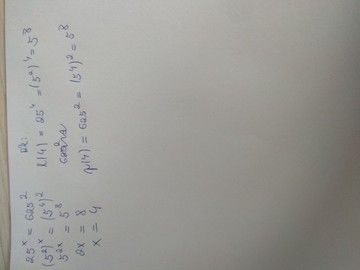 25ˣ = 625²
(5²)ˣ = (5⁴)²
5²ˣ = 5⁸
2x = 8
x = 4
L(4) = 25⁴ = (5²)⁴ = 5⁸
p(4) = 625² = (5⁴)² = 5⁸